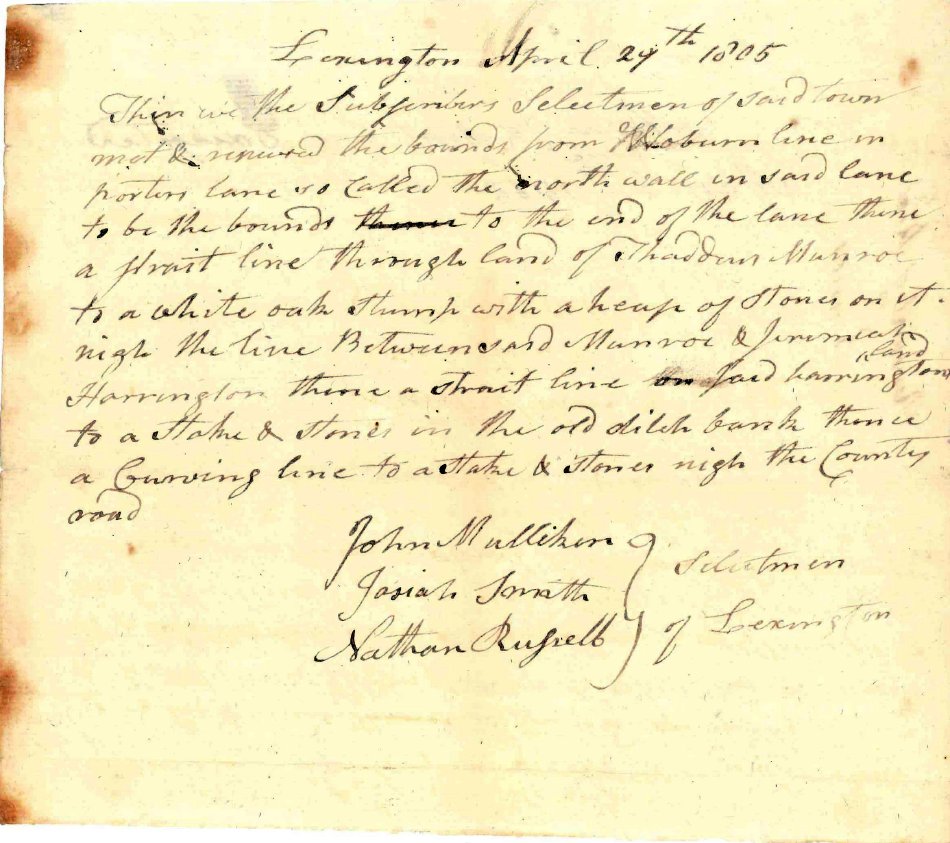 Lexington April 24th 1805
Then we the Subscribers Selectmen of said town
met & renewed the bounds from Woburn line in
porters lane so Called the north wall in said lane
to be the bounds to the end of the lane thence
a strait line through land of Thaddeus Munroe
to a white oak stump with a heap of stones on it
nigh the line Between said Munroe & Jeremiah
Harrington thence a strait line on said harringtons land
to a stake & stones in the old ditch bank thence
a Curving line to a stake & stones nigh the County
road
John Mulliken
Josiah Smith
Nathan Russell
Selectmen
of Lexington